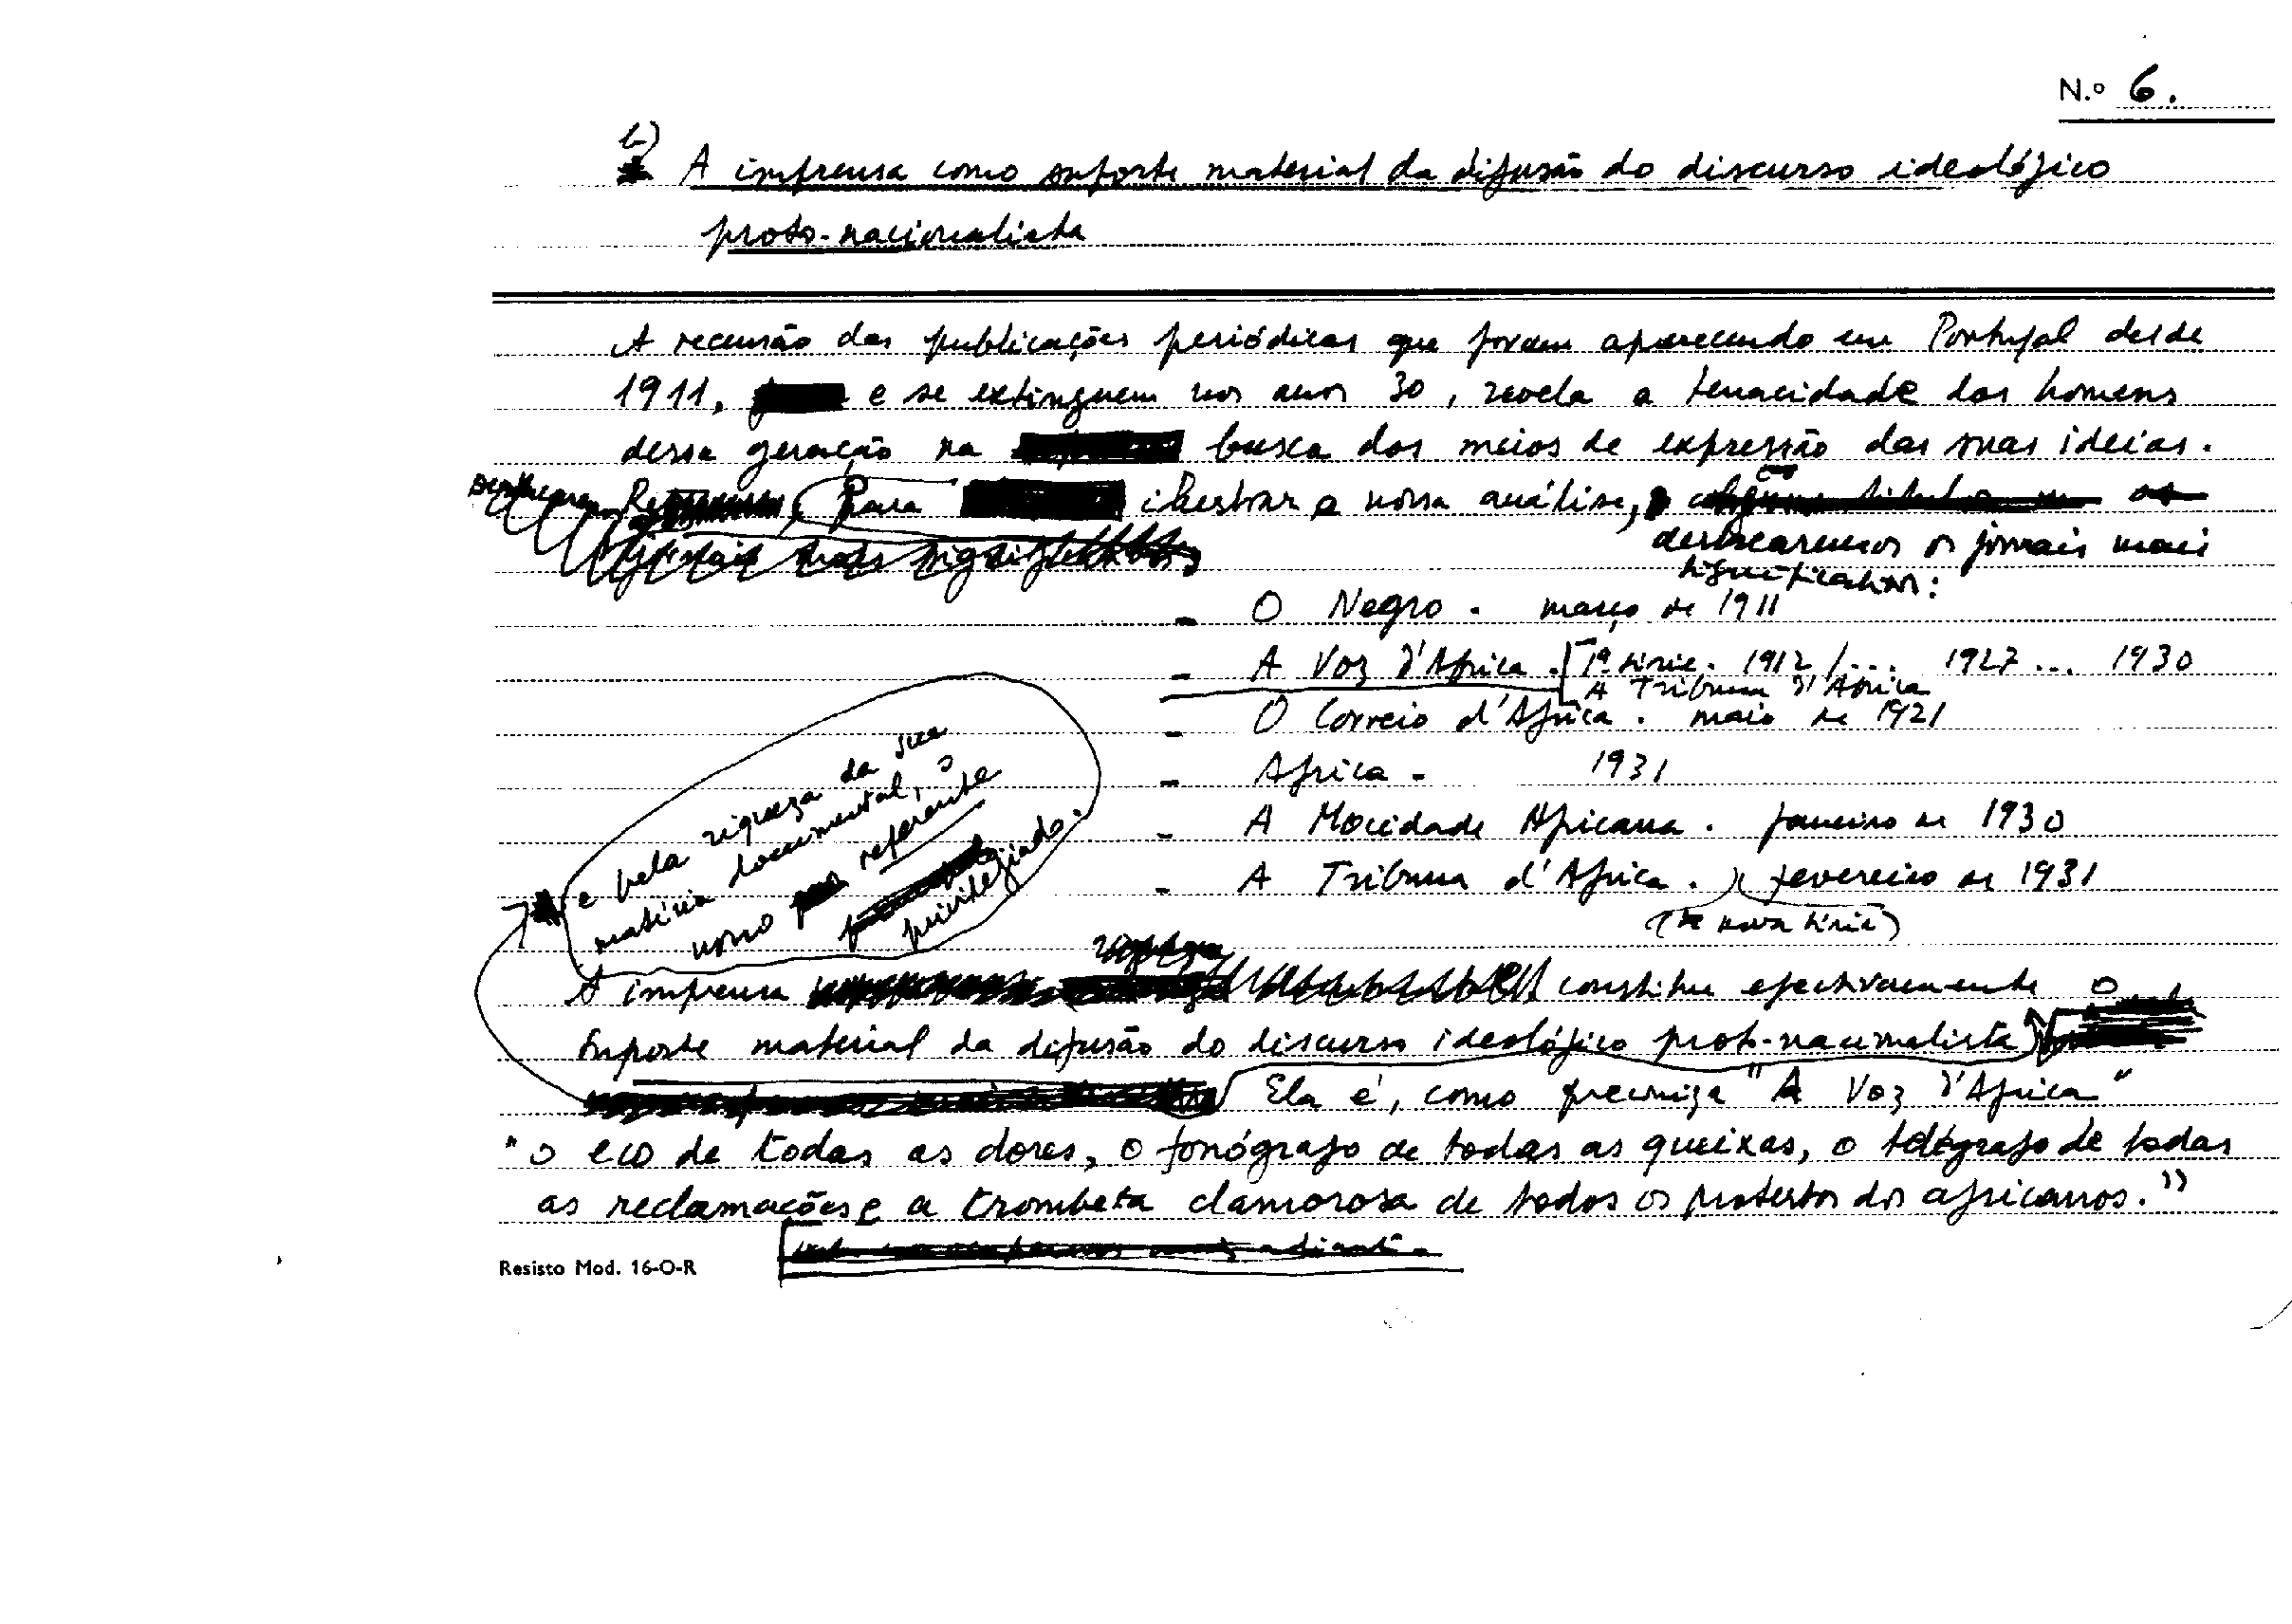 N.º 6.
b)
A imprensa como suporte material da difusão do discurso ideológico
proto-nacionalista
A recensão das publicações periódicas que foram aparecendo em Portugal desde
1911, e se extinguem nos anos 30, revela a tenacidade dos homens
dessa geração na busca dos meios de expressão das suas ideias.
Para ilustrar a nossa análise,
destacaremos os jornais mais
significativos:
- O Negro. março de 1911
- A Voz d'Africa. [1ª série. 1912 /... 1927... 1930
A Tribuna d'Africa
- O Correio d'Africa. maio de 1921
- Africa - 1931
- A Mocidade Africana. Janeiro de 1930
- A Tribuna d'Africa. fevereiro de 1931
(nova série)
e pela riqueza da sua
matéria documental, o
nosso referente
privilegiado.
A imprensa constitue efectivamente o
suporte material da difusão do discurso ideológico proto-nacionalista
Ela é, como preconiza "A Voz d'Africa"
"o eco de todas as dores, o fonógrafo de todas as queixas, o telégrafo de todas
as reclamações e a trombeta clamorosa de todos os protestos dos africanos."
Resisto Mod. 16-O-R